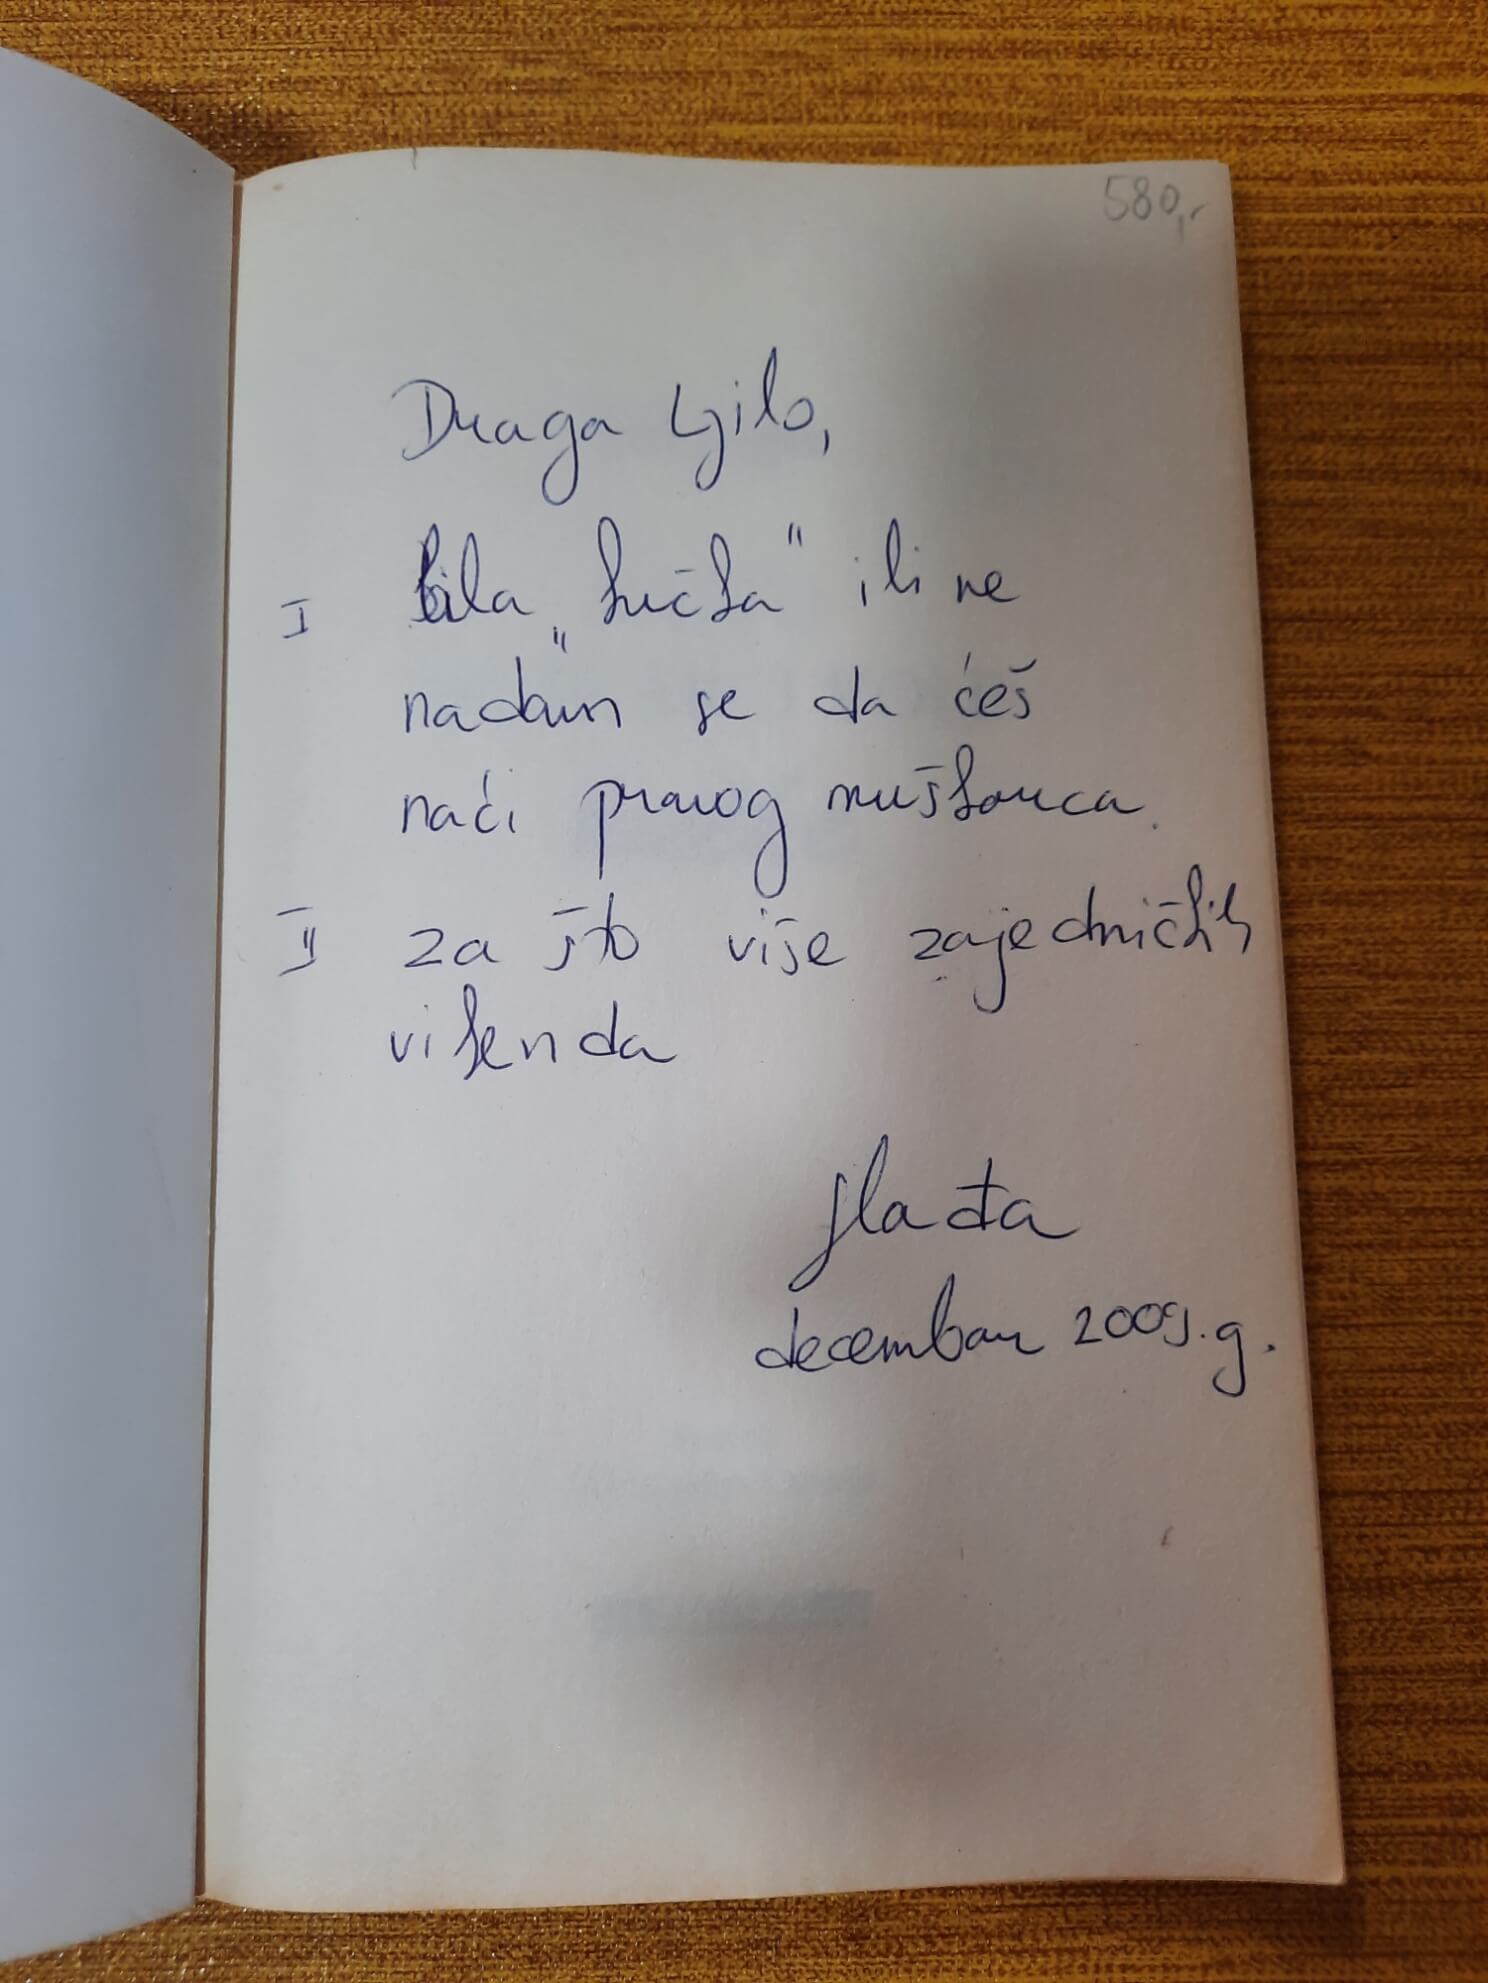 580,-
Draga Ljilo,
I bila „kučka" ili ne
nadam se da ćeš
naći pravog muškarca.
II za što više zajedničkih
vikenda
Slađa
decembar 2009. g.